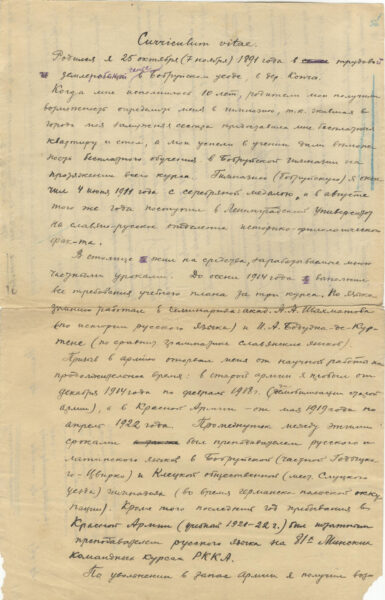 Curriculum vitae.
Родился я 25 октября (7 ноября) 1891 года в трудовой
земледельческой в Бобруйском уезде, в дер.
Когда мне исполнилось 10 лет, родители мои получили
возможность определить меня в гимназию, т.к. жившая в
городе моя замужняя сестра предоставила мне бесплатно
квартиру и стол, а мои успехи в учении дали возмож-
ность бесплатного обучения в Бобруйской гимназии на
протяжении всего курса. Гимназию (Бобруйскую) я окон-
чил 4 июня 1911 года с серебряной медалью, и в августе
того же года поступил в Ленинградский Университет
на славяно-русское отделение историко-филологического
фак-та.
В столице жил на средства, зарабатываемые мною
частными уроками. До осени 1914 года я выполнил
все требования учебного плана за три курса. По языко-
знанию работал в семинариях акад. А.А. Шахматова
(по истории русского языка) и И.А. Бодуэна-де-Кур-
тенэ (по сравнит. грамматике славянских языков).
Призыв в армию оторвал меня от научной работы на
продолжительное время: в старой армии я пробыл от
декабря 1914 года по февраль 1918 г. (демобилизация старой
армии), а в Красной Армии – от мая 1919 года по
апрель 1922 года. Промежуток между этими
сроками был преподавателем русского и
латинского языков в Бобруйской (частной Годыцко-
го-Цвирко) и Клецкой общественной (мест. Слуцкого
уезда) гимназиях (во время германско-польской окку-
пации). Кроме того последний год пребывания в
Красной Армии (учебный 1921-22 г.) был штатным
преподавателем русского языка на 81х Минских
командных курсах РККА.
По увольнении в запас армии я получил воз-